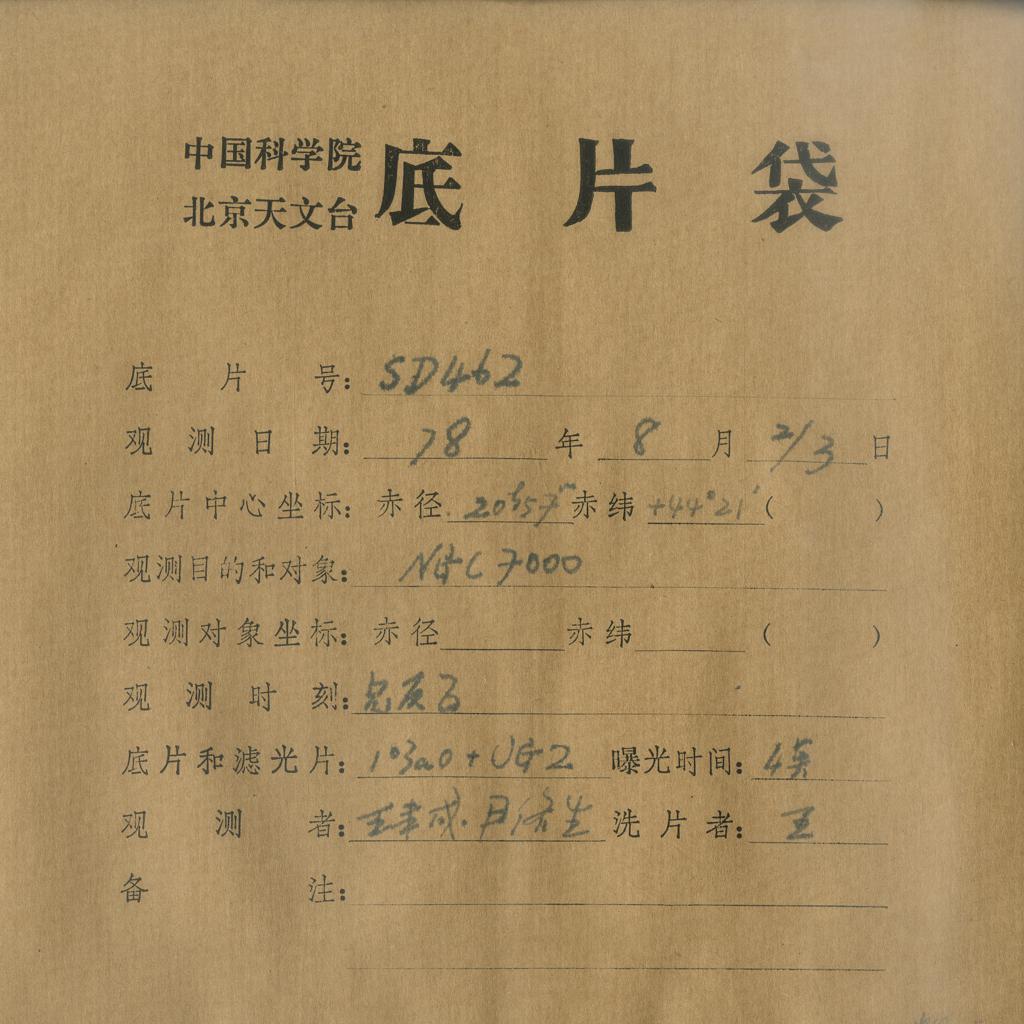 中国科学院
北京天文台
底片袋
底片号: SD462
观测日期: 78年 8月 2/3日
底片中心坐标: 赤径 20ʰ57ᵐ 赤纬 +44°21′ ( )
观测目的和对象: NGC 7000
观测对象坐标: 赤径 赤纬 ( )
观测时刻:
底片和滤光片: 103aO + UG2 曝光时间: 4
观测者: 王 洗片者: 王
备注: